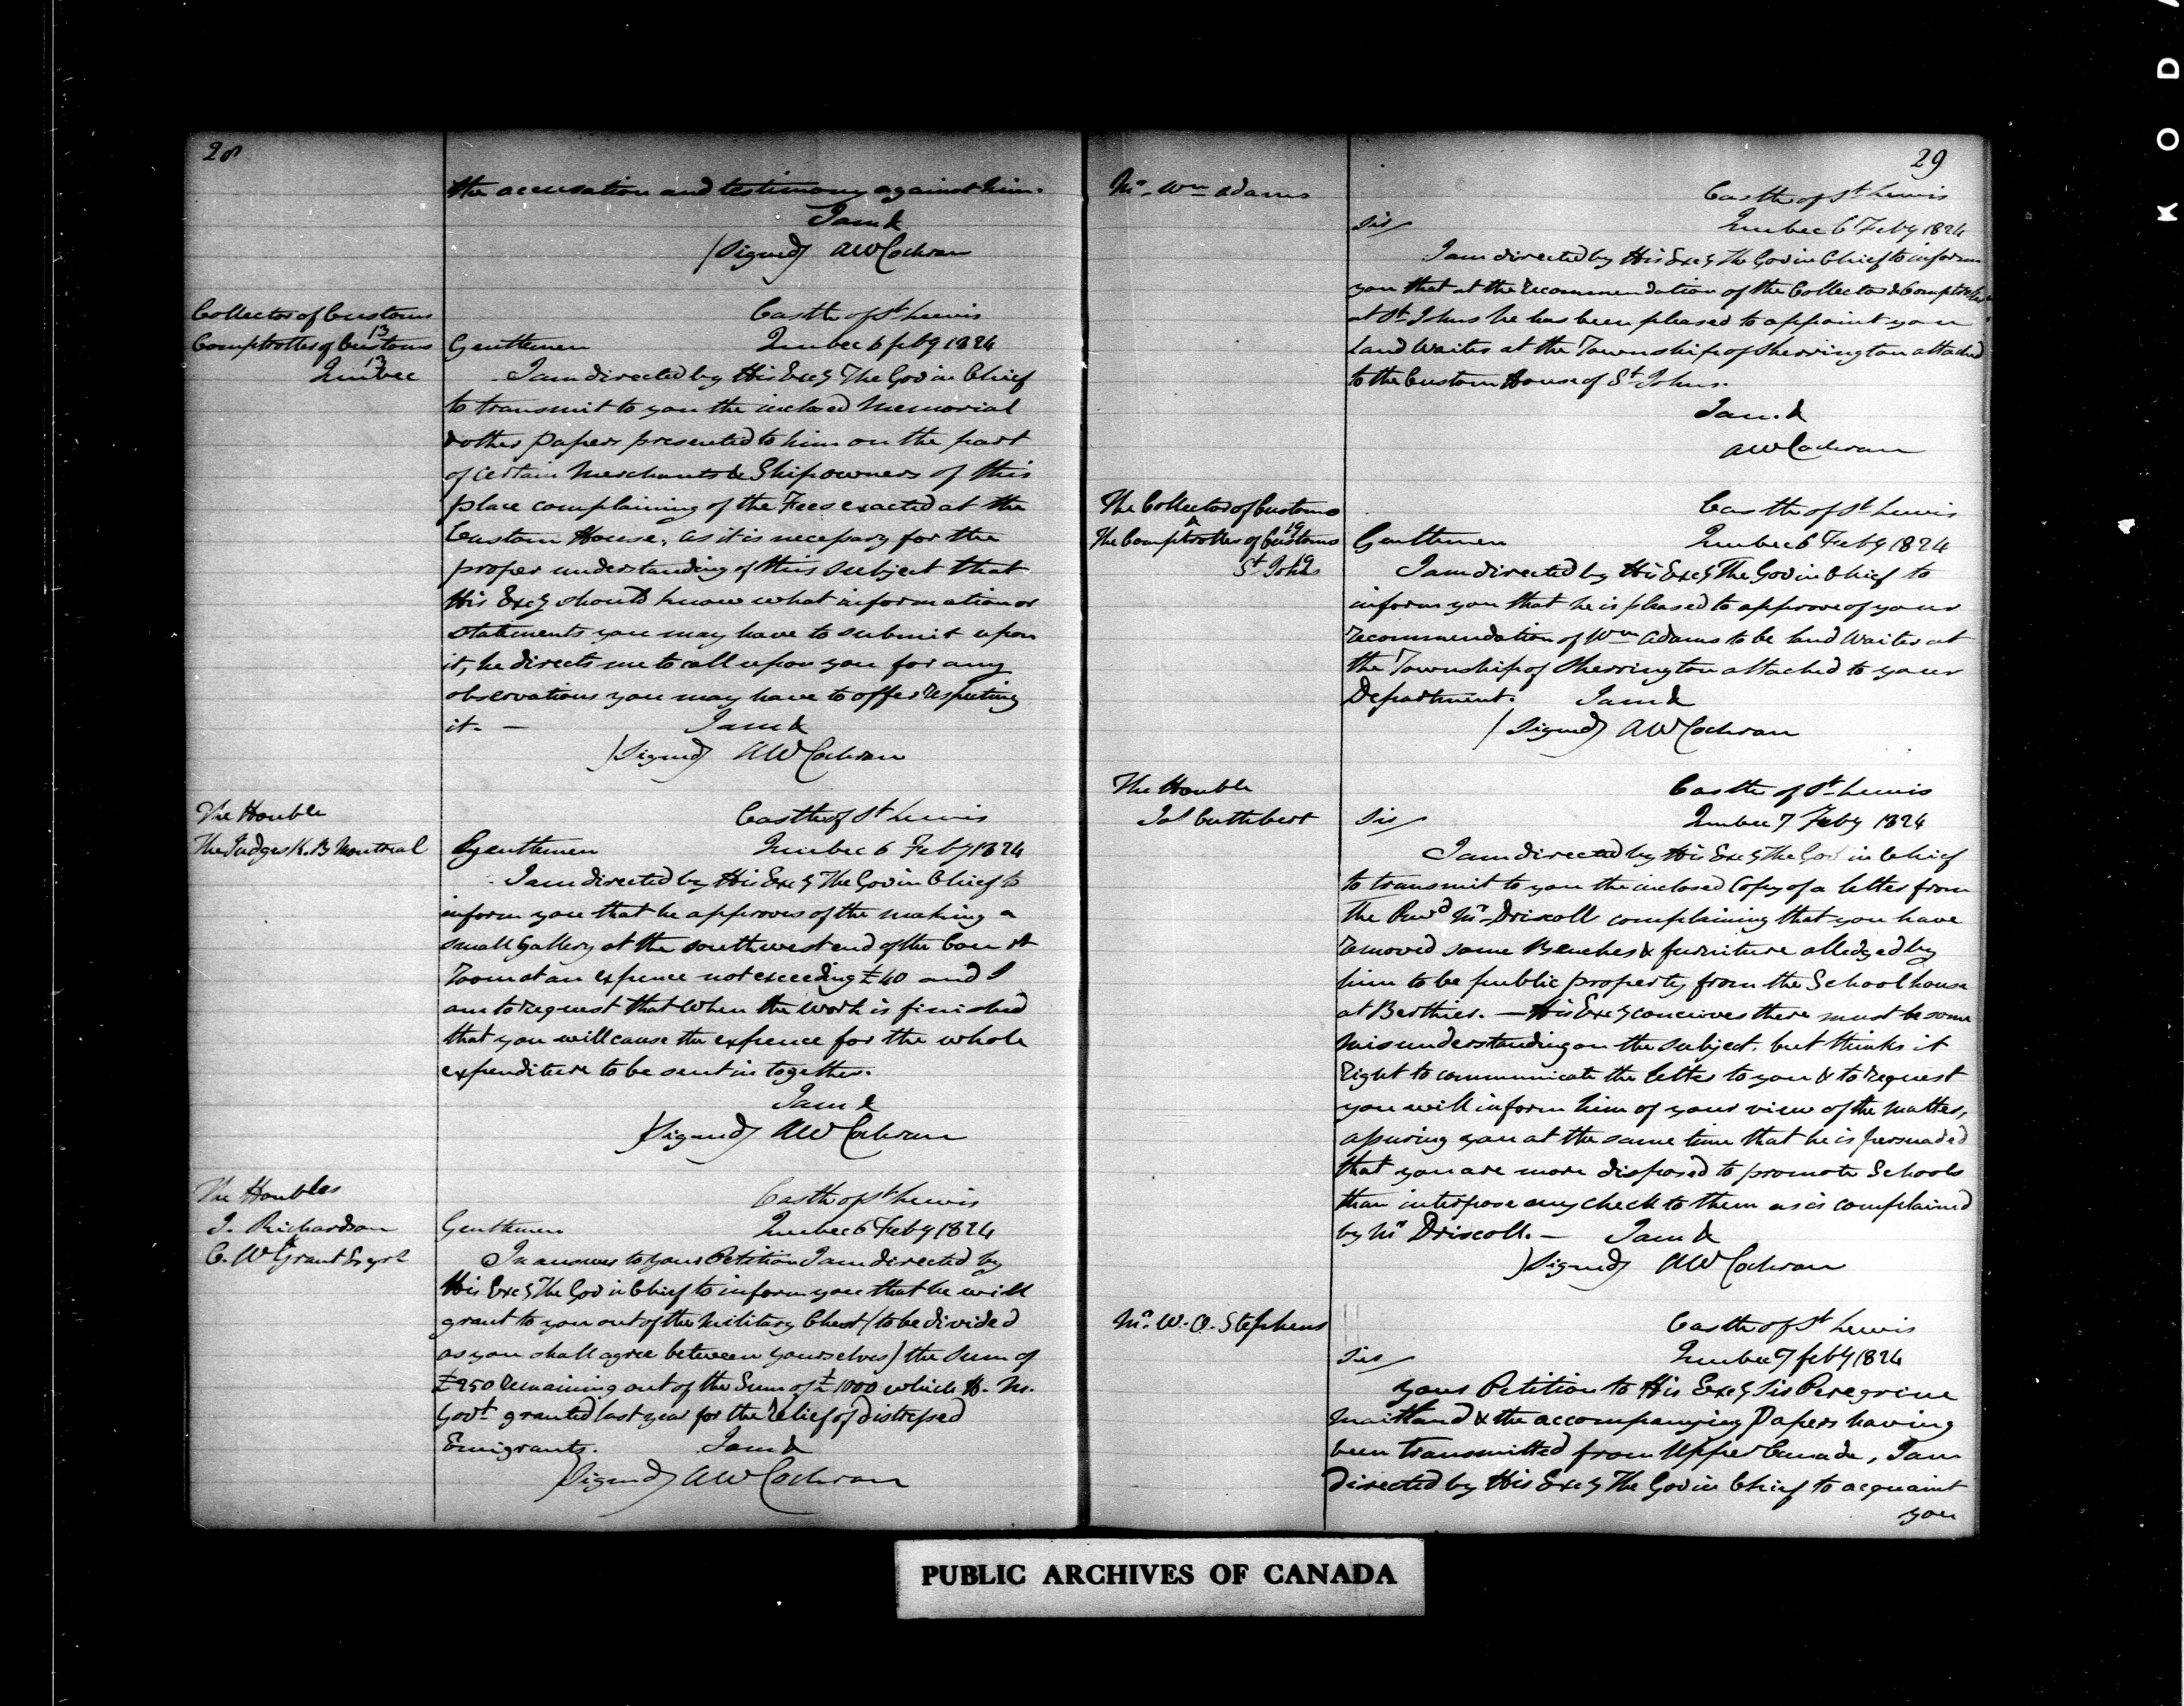 28
the accusation and testimony against him.
I am &
(Signed) AW Cochran
Collector of Customs
Comptroller of Customs
13
13
Quebec
Castle of St Lewis
Gentlemen
Quebec 6 feby 1824
I am directed by His Excy The Gov in Chief
to transmit to you the inclosed Memorial
& other Papers presented to him on the part
of certain Merchants & Shipowners of this
place complaining of the Fees exacted at the
Custom House, as it is necessary for the
proper understanding of this subject that
His Excy should know what information or
statements you may have to submit upon
it, he directs me to call upon you for any
observations you may have to offer respecting
it. —
I am &
(Signed) AW Cochran
The Honble
The Judges K. B Montreal
Castle of St Lewis
Gentlemen
Quebec 6 Feby 1824
I am directed by His Excy The Gov in Chief to
inform you that he approves of the making a
small Gallery at the south west end of the Court
Room at an expence not exceeding £40 and I
am to request that when the work is finished
that you will cause the expence for the whole
expenditure to be sent in together.
I am &
(Signed) AW Cochran
The Honbles
J. Richardson
&
C. W Grant Esqrs
Castle of St Lewis
Gentlemen
Quebec 6 Feby 1824
In answer to your Petition I am directed by
His Excy The Gov in Chief to inform you that he will
grant to you out of the Military Chest (to be divided
as you shall agree between yourselves) the sum of
£250 remaining out of the Sum of £1000 which H. M.
Govt granted last year for the relief of distressed
Emigrants.
I am &
(Signed) AW Cochran
29
Mr. Wm Adams
Castle of St Lewis
Sir/
Quebec 6 Feby 1824
I am directed by His Excy The Gov in Chief to inform
you that at the recommendation of the Collector & Comptroller
at St Johns he has been pleased to appoint you
Land Waiter at the Township of Sherrington attached
to the Custom House of St Johns.
I am. &
AW Cochran
The Collector of Customs
&
The Comptroller of Customs
19
St Johns
Castle of St Lewis
Gentlemen
Quebec 6 Feby 1824
I am directed by His Excy The Gov in Chief to
inform you that he is pleased to approve of your
recommendation of Wm Adams to be land Waiter at
the Township of Sherrington attached to your
Department.
I am &
(Signed) AW Cochran
The Honble
Jas Cuthbert
Castle of St Lewis
Sir/
Quebec 7 Feby 1824
I am directed by His Excy The Gov in Chief
to transmit to you the inclosed Copy of a letter from
the Revd Mr. Driscoll complaining that you have
removed some Benches & furniture alledged by
him to be public property from the School house
at Berthier. — His Excy conceives there must be some
misunderstanding on the subject. but thinks it
right to communicate the letter to you & to request
you will inform him of your view of the matter,
assuring you at the same time that he is persuaded
that you are more disposed to promote Schools
than interpose any check to them as is complained
by Mr Driscoll. —
I am &
(Signed) AW Cochran
Mr. W. O. Stephens
Castle of St Lewis
Sir/
Quebec 7 feby 1824
your Petition to His Excy Sir Peregrine
Maitland & the accompanying Papers having
been transmitted from Upper Canada, I am
directed by His Excy The Gov in Chief to acquaint
you
PUBLIC ARCHIVES OF CANADA
KODA